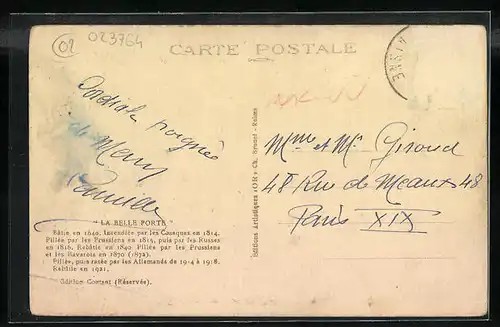 02
023764
CARTE POSTALE
AISNE
Cordiale poignée
de Main
Mme et Mr Giroud
48 Rue de Meaux 48
Paris XIX
Editions Artistiques «OR» Ch. Brunel
"LA BELLE PORTE"
Bâtie en 1640. Incendiée par les Cosaques en 1814.
Pillée par les Prussiens en 1815, puis par les Russes
en 1816. Rebâtie en 1840 Pillée par les Prussiens
et les Bavarois en 1870 (1872).
Pillée, puis rasée par les Allemands de 1914 à 1918.
Rebâtie en 1921.
Edition Contant (Réservée).